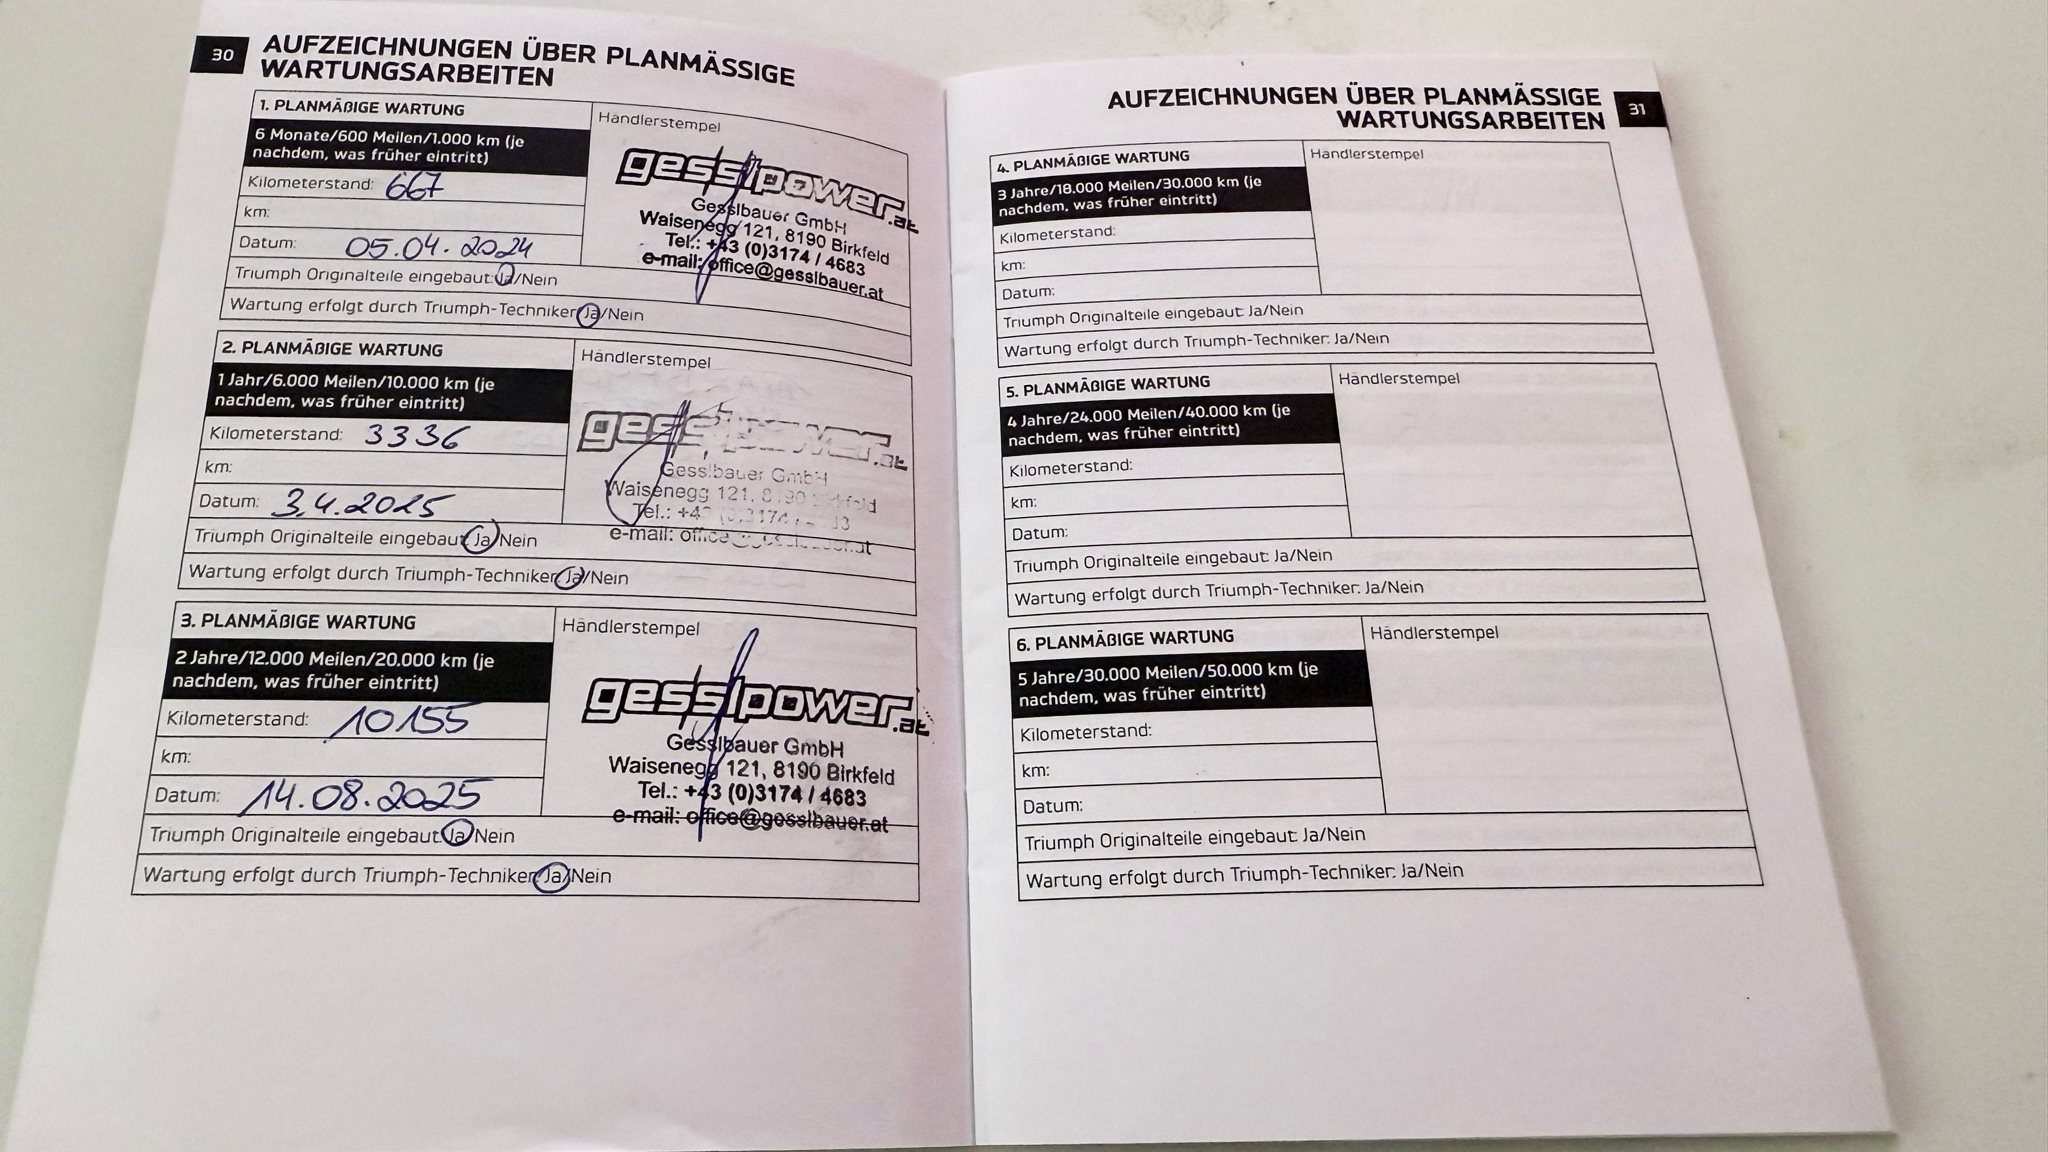 30
AUFZEICHNUNGEN ÜBER PLANMÄSSIGE
WARTUNGSARBEITEN
1. PLANMÄßIGE WARTUNG
6 Monate/600 Meilen/1.000 km (je
nachdem, was früher eintritt)
Kilometerstand: 667
km:
Datum: 05.04.2024
Händlerstempel
gesslpower.at
Gesslbauer GmbH
Waisenegg 121, 8190 Birkfeld
Tel.: +43 (0)3174 / 4683
e-mail: office@gesslbauer.at
Triumph Originalteile eingebaut: Ja/Nein
Wartung erfolgt durch Triumph-Techniker: Ja/Nein
2. PLANMÄßIGE WARTUNG
1 Jahr/6.000 Meilen/10.000 km (je
nachdem, was früher eintritt)
Kilometerstand: 3336
km:
Datum: 3.4.2025
Händlerstempel
gesslpower.at
Gesslbauer GmbH
Waisenegg 121, 8190 Birkfeld
Tel.: +43 (0)3174 / 4683
e-mail: office@gesslbauer.at
Triumph Originalteile eingebaut: Ja/Nein
Wartung erfolgt durch Triumph-Techniker: Ja/Nein
3. PLANMÄßIGE WARTUNG
2 Jahre/12.000 Meilen/20.000 km (je
nachdem, was früher eintritt)
Kilometerstand: 10155
km:
Datum: 14.08.2025
Händlerstempel
gesslpower.at
Gesslbauer GmbH
Waisenegg 121, 8190 Birkfeld
Tel.: +43 (0)3174 / 4683
e-mail: office@gesslbauer.at
Triumph Originalteile eingebaut: Ja/Nein
Wartung erfolgt durch Triumph-Techniker: Ja/Nein
AUFZEICHNUNGEN ÜBER PLANMÄSSIGE
WARTUNGSARBEITEN
31
4. PLANMÄßIGE WARTUNG
3 Jahre/18.000 Meilen/30.000 km (je
nachdem, was früher eintritt)
Kilometerstand:
km:
Datum:
Händlerstempel
Triumph Originalteile eingebaut: Ja/Nein
Wartung erfolgt durch Triumph-Techniker: Ja/Nein
5. PLANMÄßIGE WARTUNG
4 Jahre/24.000 Meilen/40.000 km (je
nachdem, was früher eintritt)
Kilometerstand:
km:
Datum:
Händlerstempel
Triumph Originalteile eingebaut: Ja/Nein
Wartung erfolgt durch Triumph-Techniker: Ja/Nein
6. PLANMÄßIGE WARTUNG
5 Jahre/30.000 Meilen/50.000 km (je
nachdem, was früher eintritt)
Kilometerstand:
km:
Datum:
Händlerstempel
Triumph Originalteile eingebaut: Ja/Nein
Wartung erfolgt durch Triumph-Techniker: Ja/Nein